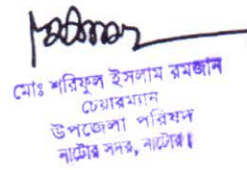 মোঃ শরিফুল ইসলাম রমজান
চেয়ারম্যান
উপজেলা পরিষদ
নাটোর সদর, নাটোর।